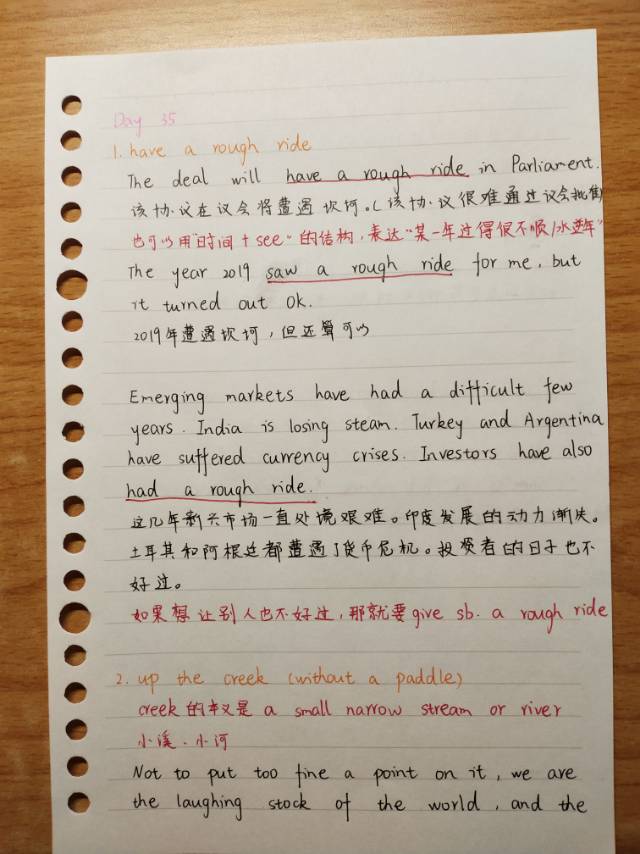 Day 35
1. have a rough ride
The deal will have a rough ride in Parliament.
该协议在议会将遭遇坎坷。(该协议很难通过议会批准)
也可以用"时间+see"的结构,表达"某一年过得很不顺/水逆年"
The year 2019 saw a rough ride for me, but
it turned out ok.
2019年遭遇坎坷,但还算可以
Emerging markets have had a difficult few
years. India is losing steam. Turkey and Argentina
have suffered currency crises. Investors have also
had a rough ride.
这几年新兴市场一直处境艰难。印度发展的动力渐失。
土耳其和阿根廷都遭遇了货币危机。投资者的日子也不
好过。
如果想让别人也不好过,那就要give sb. a rough ride
2. up the creek (without a paddle)
creek的本义是 a small narrow stream or river
小溪、小河
Not to put too fine a point on it, we are
the laughing stock of the world, and the